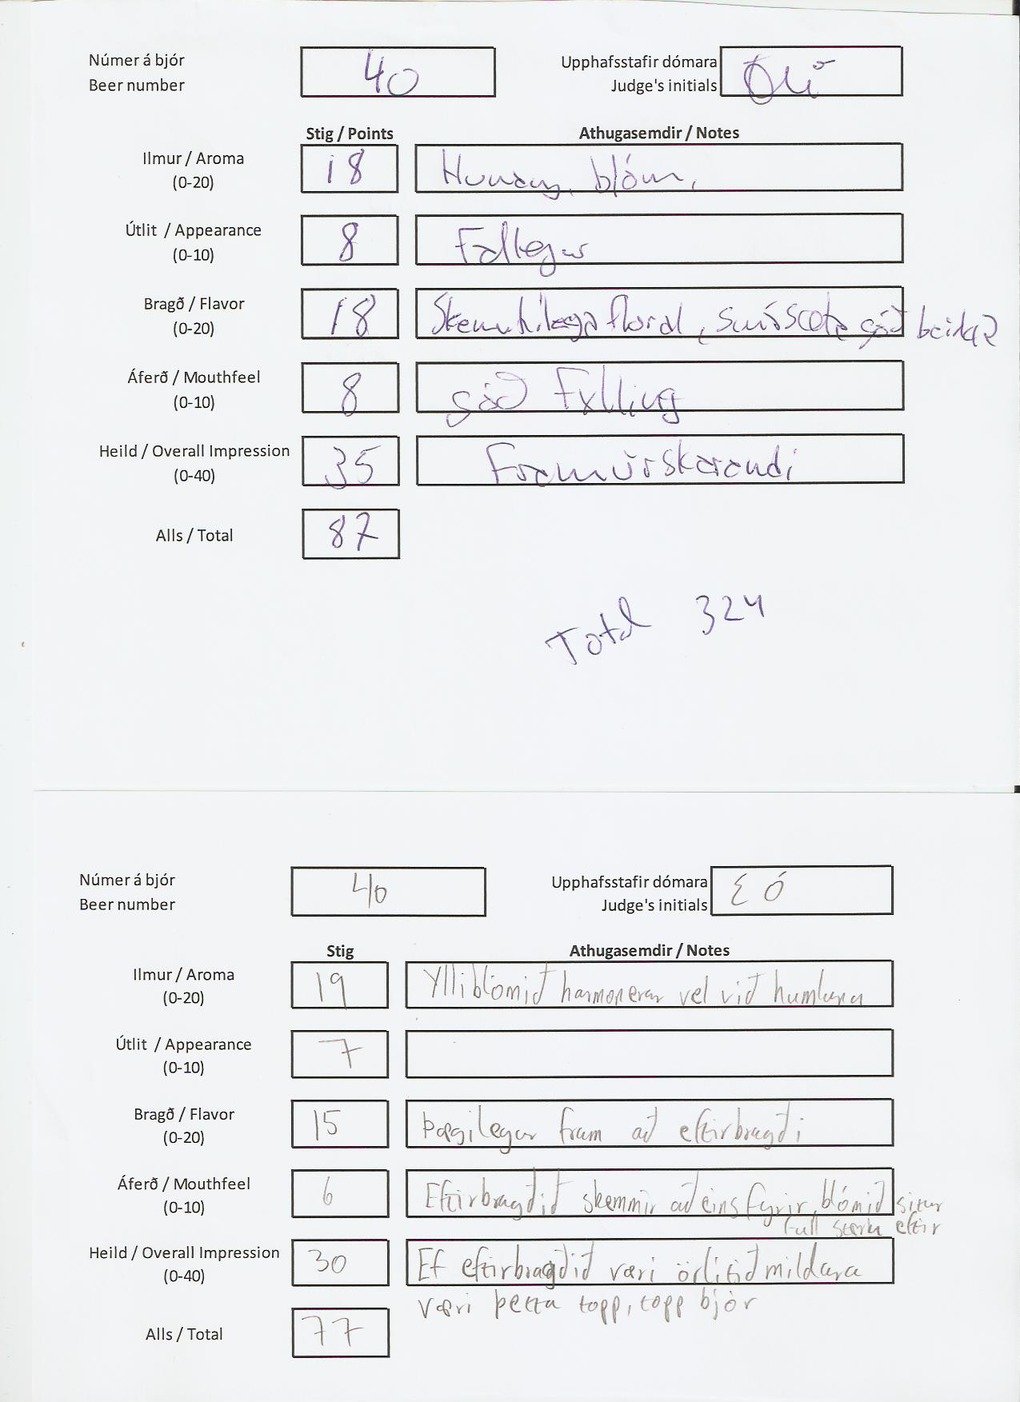 Númer á bjór
Beer number
40
Upphafsstafir dómara
Judge's initials
Stig / Points
Athugasemdir / Notes
Ilmur / Aroma
(0-20)
18
Hunang, blóm,
Útlit / Appearance
(0-10)
8
Fallegur
Bragð / Flavor
(0-20)
18
Skemmtilega floral, smá sæta góð beiskja
Áferð / Mouthfeel
(0-10)
8
góð Fylling
Heild / Overall Impression
(0-40)
35
Framúrskarandi
Alls / Total
87
Total 324
Númer á bjór
Beer number
40
Upphafsstafir dómara
Judge's initials
EÓ
Stig
Athugasemdir / Notes
Ilmur / Aroma
(0-20)
19
Ylliblómið harmonerar vel við humlana
Útlit / Appearance
(0-10)
7
Bragð / Flavor
(0-20)
15
Þægilegur fram að eftirbragði
Áferð / Mouthfeel
(0-10)
6
Eftirbragðið skemmir aðeins fyrir, blómið situr
full sterka eftir
Heild / Overall Impression
(0-40)
30
Ef eftirbragðið væri örlítið mildara
væri þetta topp, topp bjór
Alls / Total
77